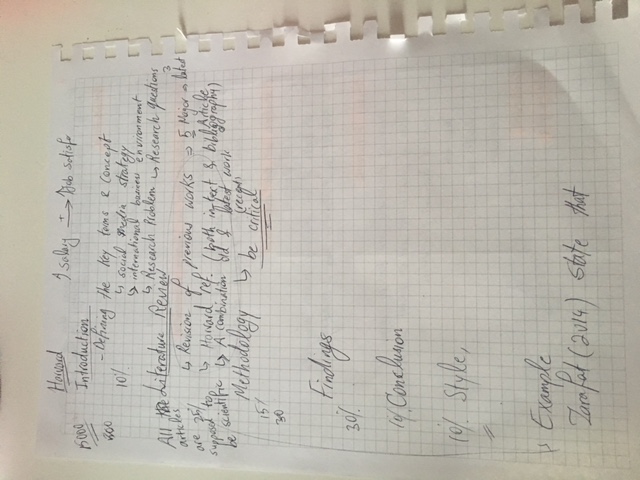 ↑ Salary +→ ↑ Job satisf
Harvard
Introduction
- Defining the key terms & Concept
↳ social media strategy
↳ international business environment
↳ Research Problem ↳ Research questions
10%
200
All the Literature Review
articles
are 35%
suppose to
be scientific
↳ Revision of previous works ⇒ 5 Major → latest
3
Article
↳ Harvard ref. (both intext & bibliography)
↳ A combination old & latest work
(recent)
↳ be critical
Methodology
15%
30
Findings
30%
Conclusion
10% Style,
↳ Example
(2014) state that